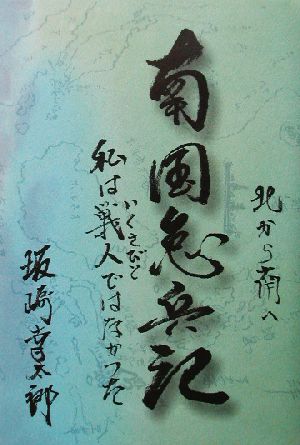 北から南へ
南国怠兵記
いくさびと
私は戦人ではなかった
坂崎幸太郎